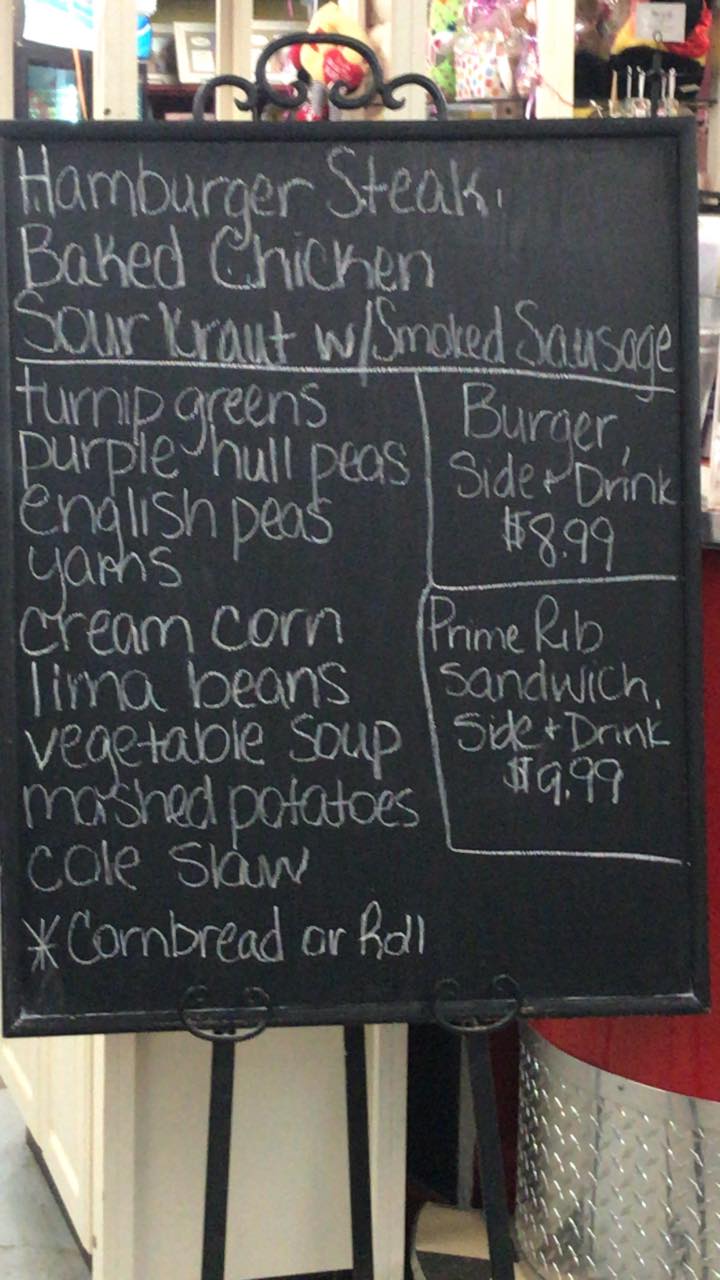 Hamburger Steak
Baked Chicken
Sour Kraut w/Smoked Sausage
turnip greens
purple hull peas
english peas
yams
cream corn
lima beans
vegetable Soup
mashed potatoes
cole slaw
*Cornbread or Roll
Burger,
Side + Drink
$8.99
Prime Rib
Sandwich,
Side + Drink
$9.99